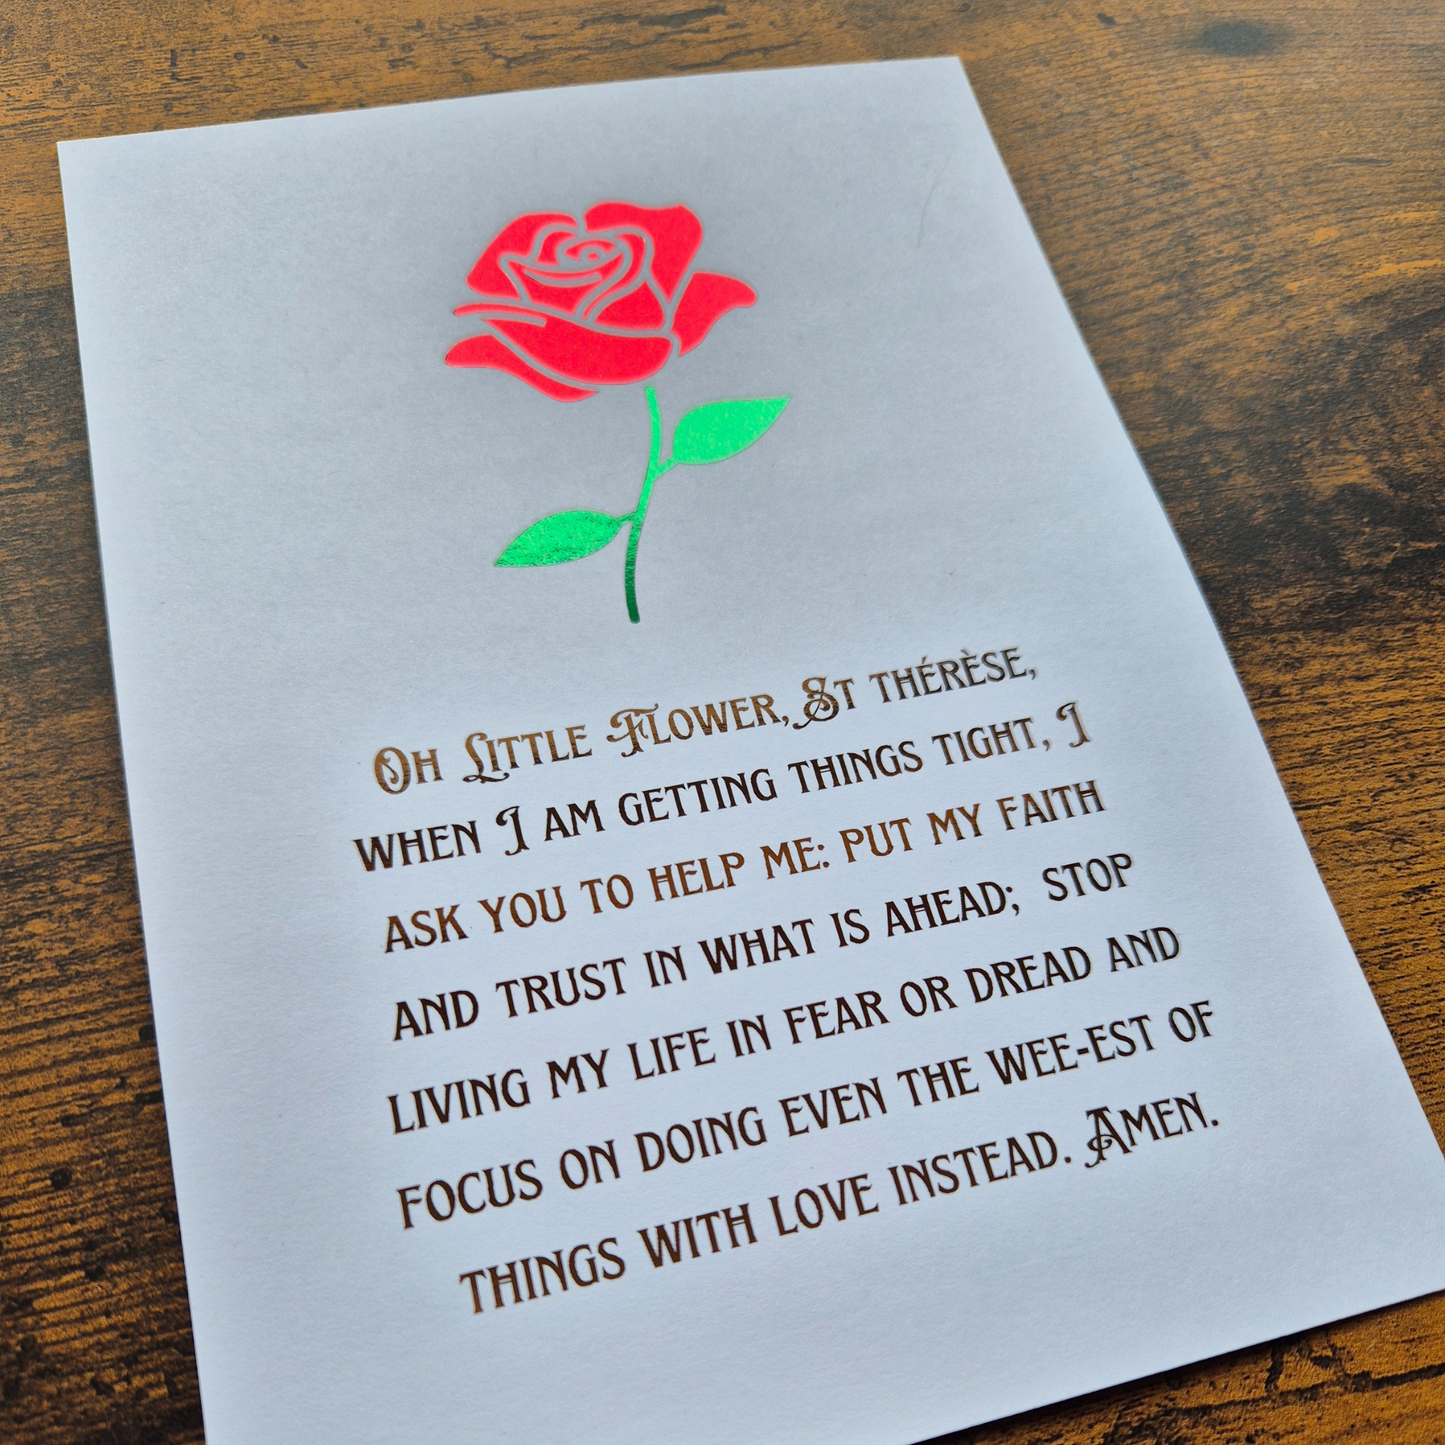 Oh Little Flower, St Thérèse,
when I am getting things tight, I
ask you to help me: put my faith
and trust in what is ahead; stop
living my life in fear or dread and
focus on doing even the wee-est of
things with love instead. Amen.